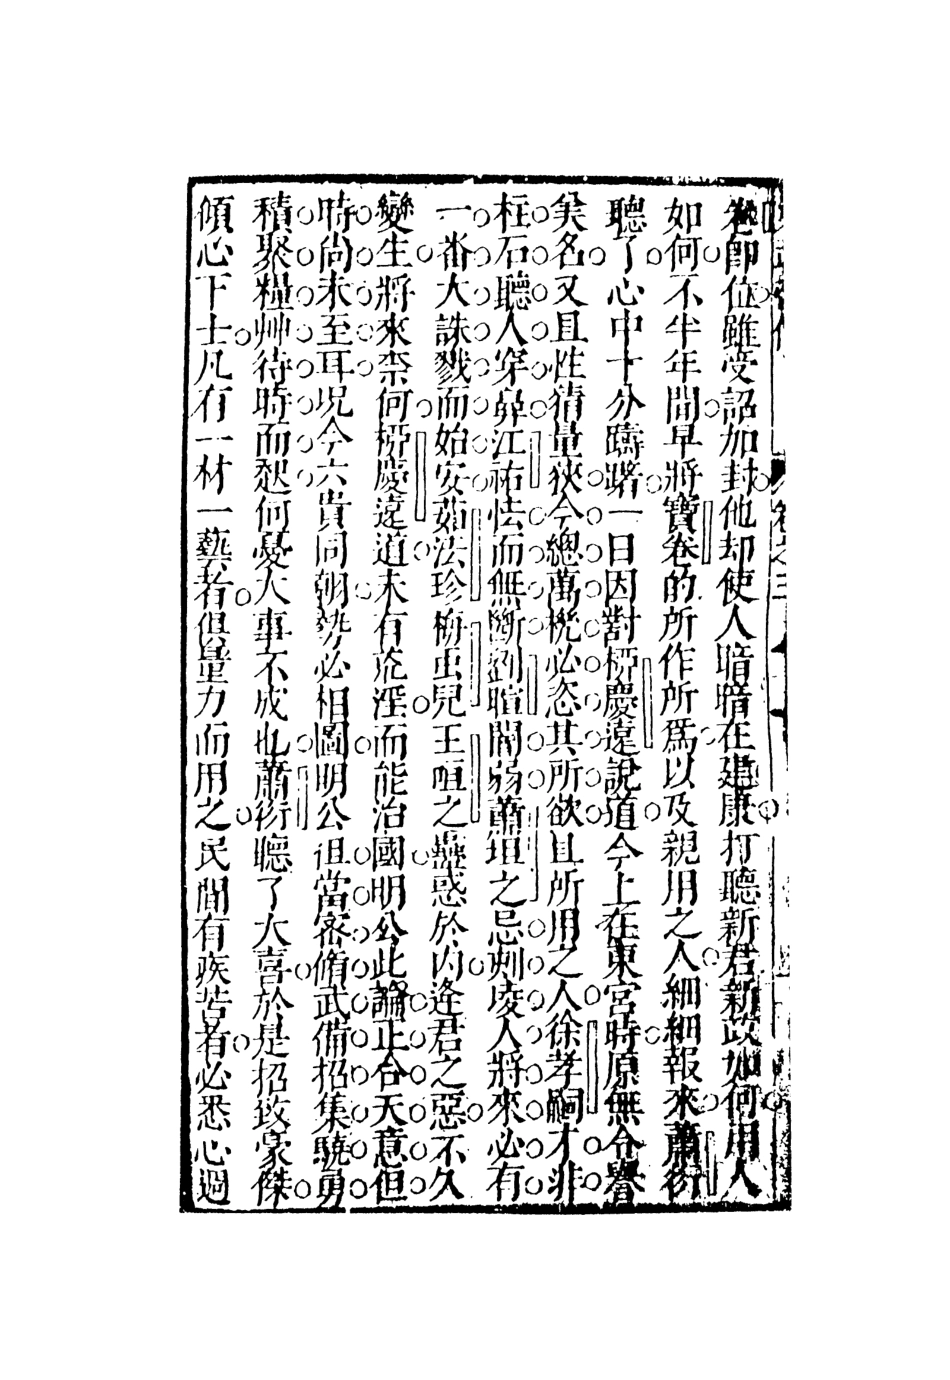 卷卽位雖受詔加封他却使人暗暗在建康打聽新君新政如何用人
如何不半年間早將寶卷的所作所爲以及親用之人細細報來蕭衍
聽了心中十分躊躇一日因對桺慶遠說道今上在東宮時原無令譽
矣名又且性猜量狹今總萬機必恣其所欲且所用之人徐孝嗣才非
柱石聽人穿鼻江祐怯而無斷劉暄闇弱蕭坦之忌刻凌人將來必有
一番大誅戮而始安茹法珍梅虫兒王咺之蠱惑於內逢君之惡不久
變生將來柰何桺慶遠道未有荒淫而能治國明公此論正合天意但
時尚未至耳况今六貴同朝勢必相圖明公但當密脩武備招集驍勇
積聚糧艸待時而起何憂大事不成也蕭衍聽了大喜於是招致豪傑
傾心下士凡有一材一藝者俱量力而用之民間有疾苦者必悉心過